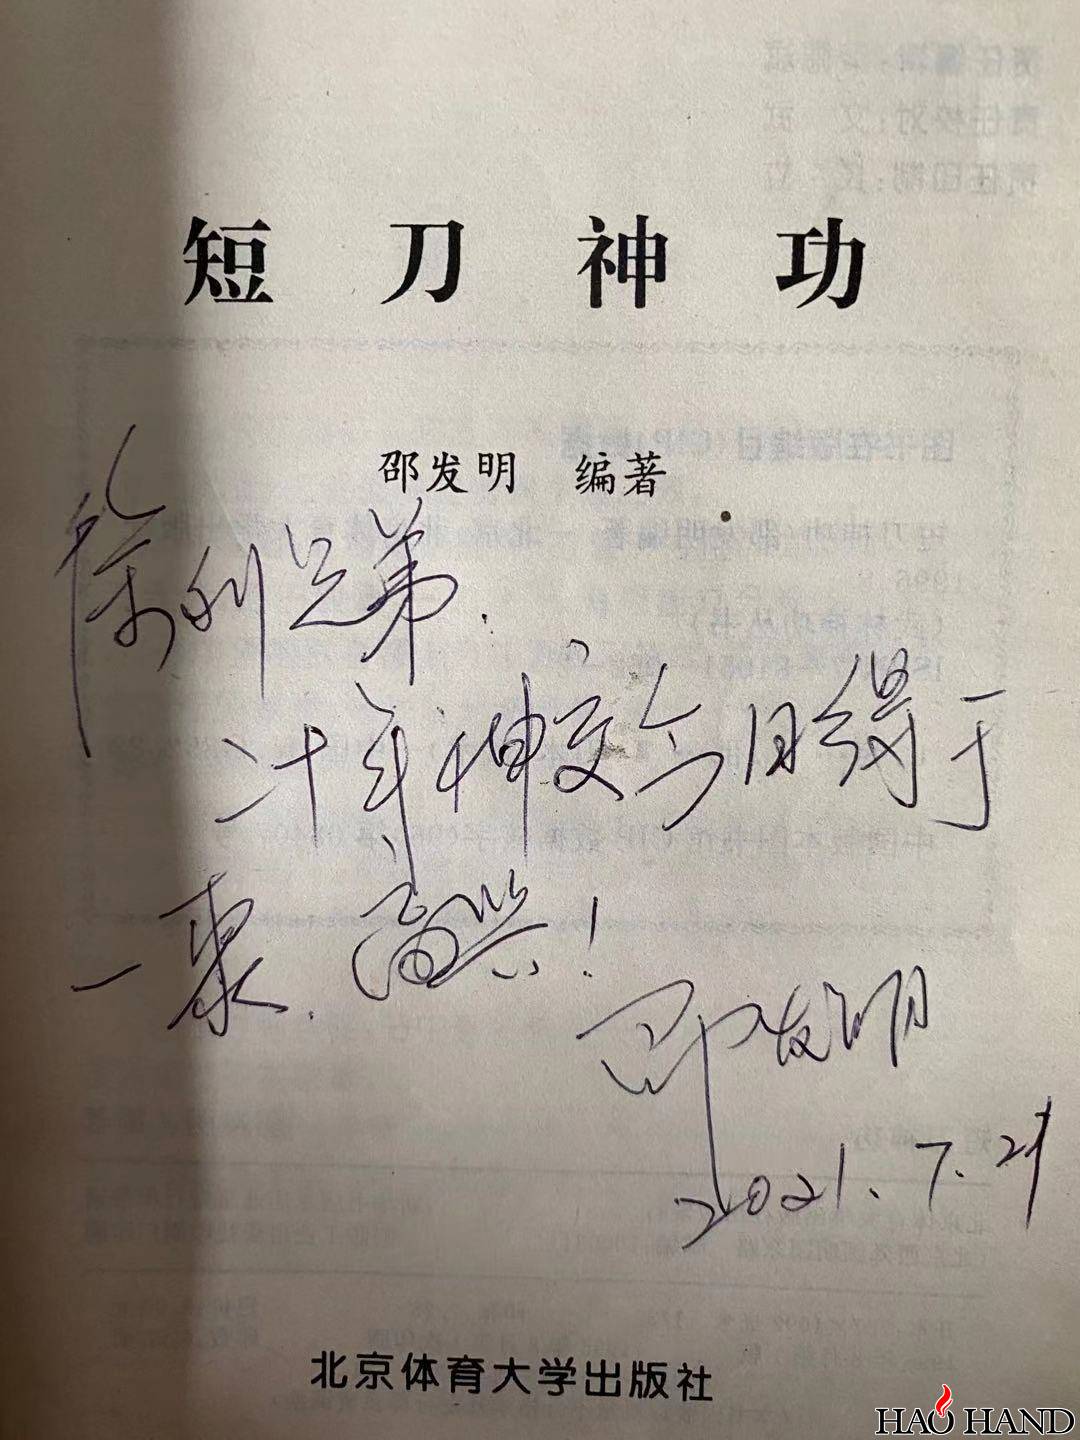 短刀神功
邵发明 编著
徐利兄弟.
二十年神交今日终得于
一聚.高兴!
邵发明
2021.7.21
北京体育大学出版社
HAO HAND